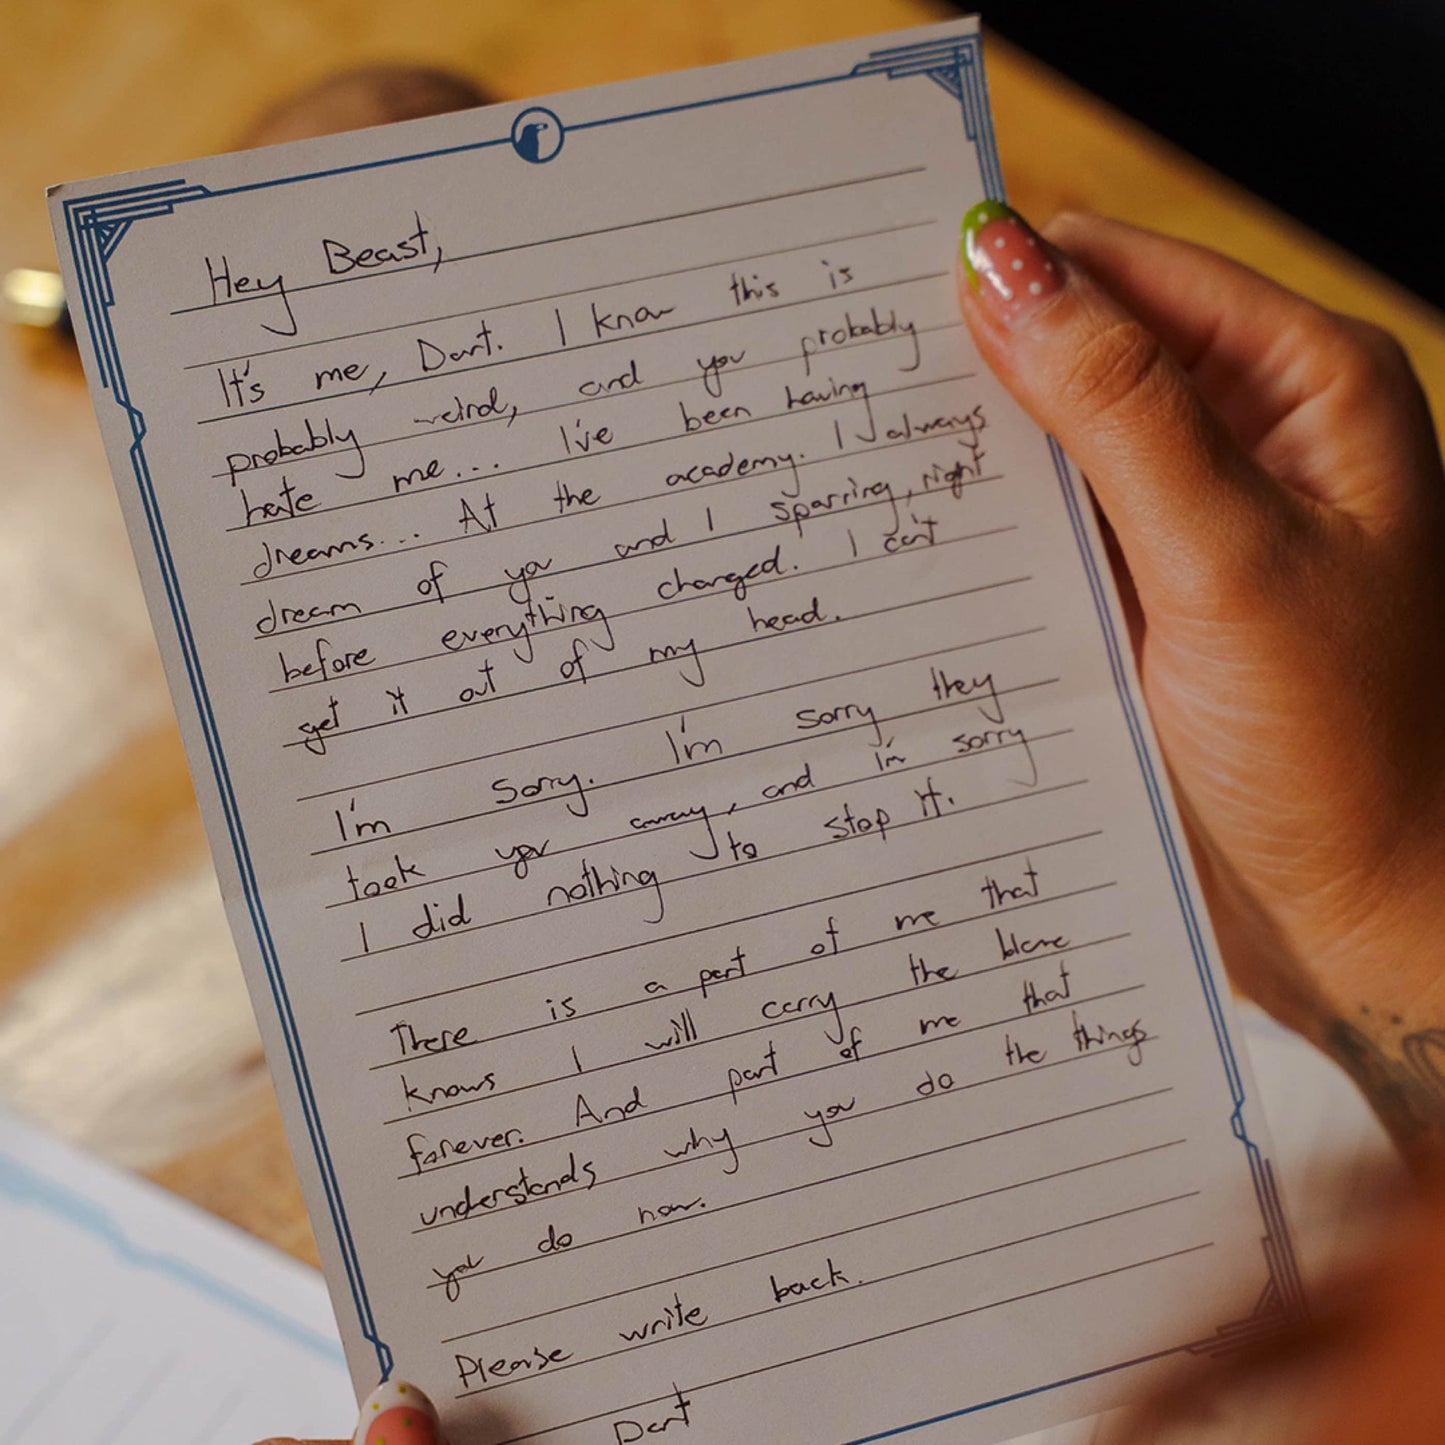 Hey Beast,
It's me, Dart. I know this is
probably weird, and you probably
hate me... I've been having
dreams... At the academy. I always
dream of you and I sparring, right
before everything changed. I can't
get it out of my head.
I'm sorry. I'm sorry they
took you away, and I'm sorry
I did nothing to stop it.
There is a part of me that
knows I will carry the blame
forever. And part of me that
understands why you do the things
you do now.
Please write back.
Dart